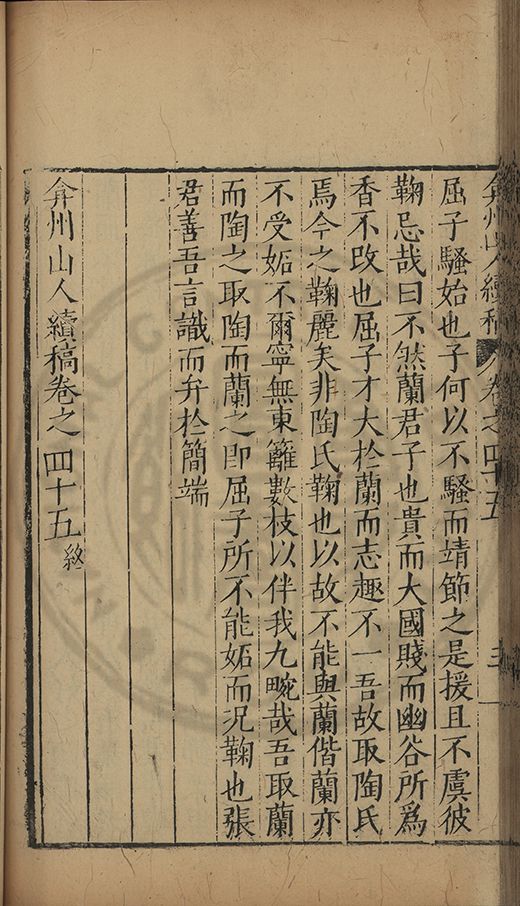 弇州山人續稿 卷之四十五
屈子騷始也子何以不騷而靖節之是援且不虞彼
鞠忌哉曰不然蘭君子也貴而大國賤而幽谷所爲
香不改也屈子才大於蘭而志趣不一吾故取陶氏
焉今之鞠麗矣非陶氏鞠也以故不能與蘭偕蘭亦
不受妬不爾寧無東籬數枝以伴我九畹哉吾取蘭
而陶之取陶而蘭之即屈子所不能妬而况鞠也張
君善吾言識而弁於簡端
弇州山人續稿卷之四十五終